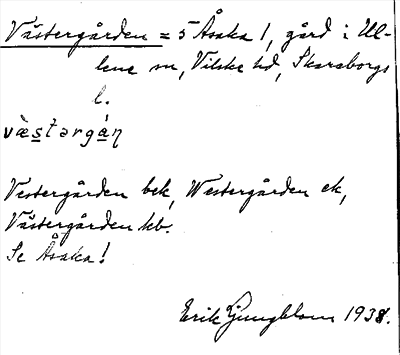 Västergården = 5 Åsaka 1, gård i Ul-
lene sn, Vilske hd, Skaraborgs
l.
væstərgàṇ
Vestergården bek, Westergården ek,
Västergården kb.
Se Åsaka!
Erik Ljungblom 1938.